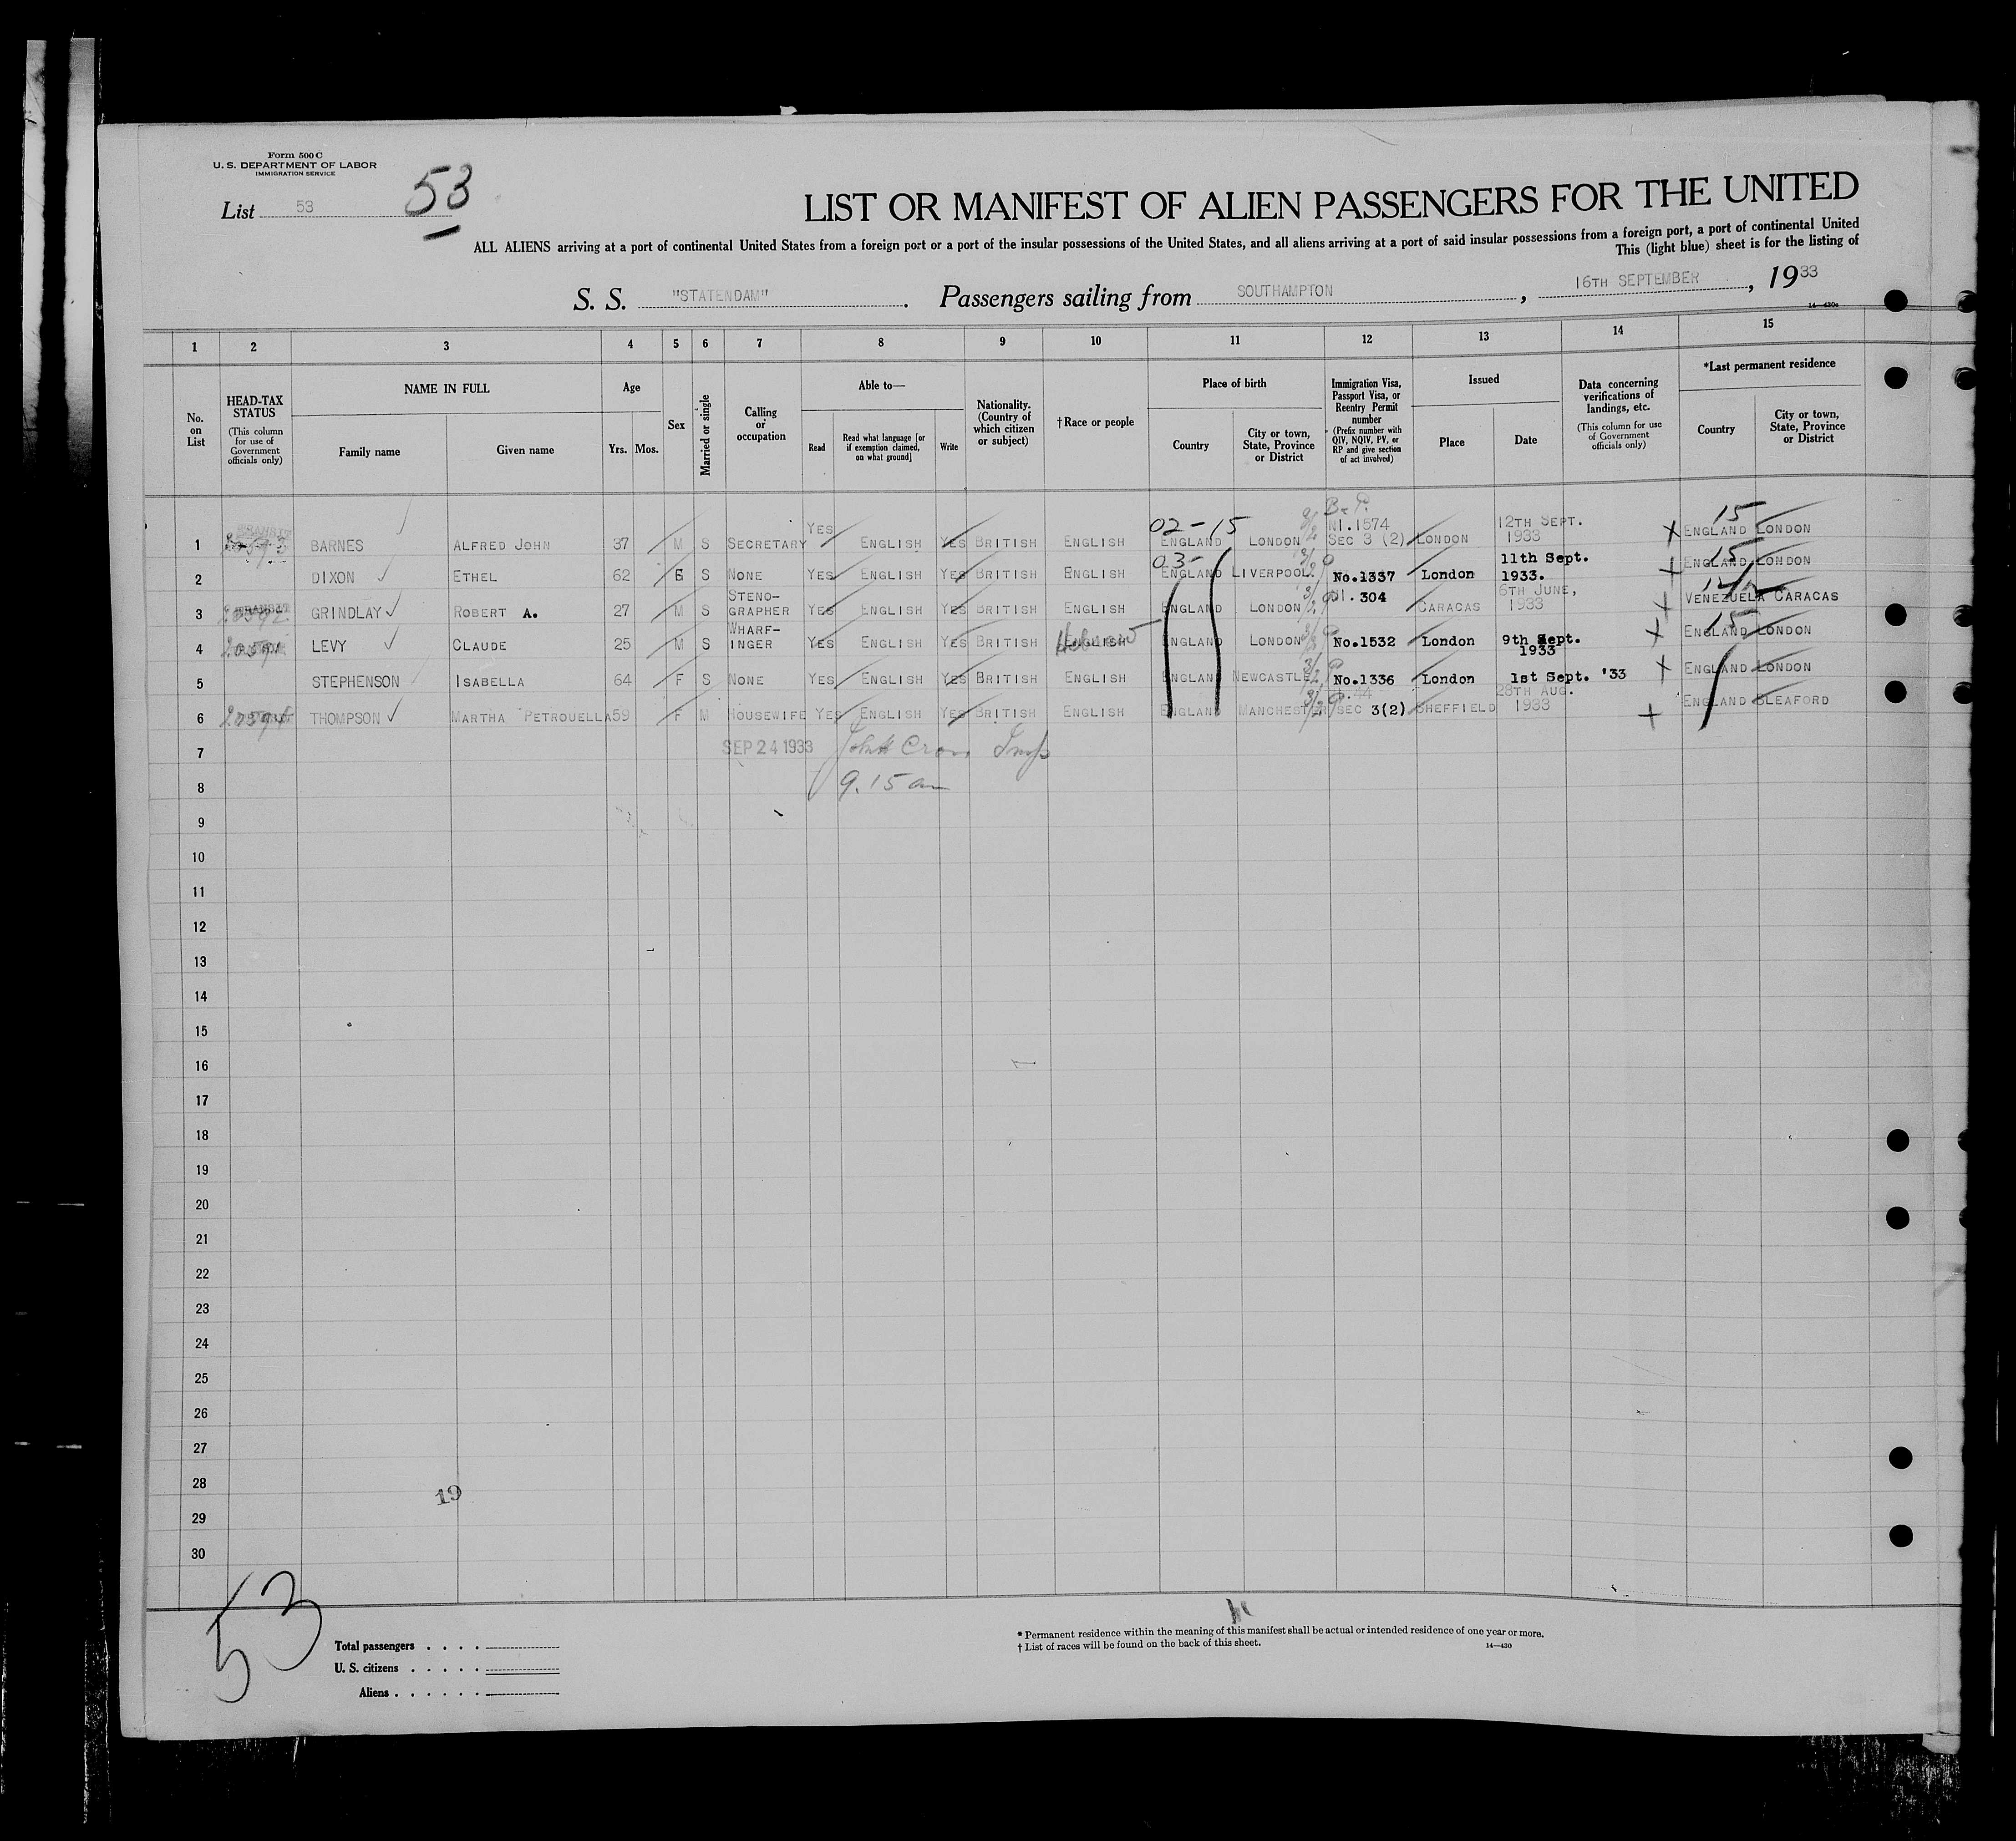 Form 500 C
U. S. DEPARTMENT OF LABOR
IMMIGRATION SERVICE
List 53 53
LIST OR MANIFEST OF ALIEN PASSENGERS FOR THE UNITED
ALL ALIENS arriving at a port of continental United States from a foreign port or a port of the insular possessions of the United States, and all aliens arriving at a port of said insular possessions from a foreign port, a port of continental United
This (light blue) sheet is for the listing of
S. S. "STATENDAM". Passengers sailing from SOUTHAMPTON, 16TH SEPTEMBER, 1933
14—430c
1 2 3 4 5 6 7 8 9 10 11 12 13 14 15
No. on List
HEAD-TAX STATUS (This column for use of Government officials only)
NAME IN FULL
Family name
Given name
Age
Yrs. Mos.
Sex
Married or single
Calling or occupation
Able to—
Read
Read what language [or if exemption claimed, on what ground]
Write
Nationality. (Country of which citizen or subject)
†Race or people
Place of birth
Country
City or town, State, Province or District
Immigration Visa, Passport Visa, or Reentry Permit number (Prefix number with QIV, NQIV, PV, or RP and give section of act involved)
Issued
Place
Date
Data concerning verifications of landings, etc. (This column for use of Government officials only)
*Last permanent residence
Country
City or town, State, Province or District
02-15 15
1 BARNES ALFRED JOHN 37 M S SECRETARY YES ENGLISH YES BRITISH ENGLISH ENGLAND LONDON N1.1574 SEC 3 (2) LONDON 12TH SEPT. 1933 X ENGLAND LONDON
03- 15
2 DIXON ETHEL 62 S NONE YES ENGLISH YES BRITISH ENGLISH ENGLAND LIVERPOOL No.1337 London 11th Sept. 1933. ENGLAND LONDON
3 20592 GRINDLAY ROBERT A. 27 M S STENO-GRAPHER YES ENGLISH YES BRITISH ENGLISH ENGLAND LONDON 304 CARACAS 6TH JUNE, 1933 VENEZUELA CARACAS
15
4 20591 LEVY CLAUDE 25 M S WHARF-INGER YES ENGLISH YES BRITISH ENGLISH Hebrew ENGLAND LONDON No.1532 London 9th Sept. 1933 ENGLAND LONDON
5 STEPHENSON ISABELLA 64 F S NONE YES ENGLISH YES BRITISH ENGLISH ENGLAND NEWCASTLE No.1336 London 1st Sept. '33 X ENGLAND LONDON
6 20594 THOMPSON MARTHA PETROUELLA 59 F M HOUSEWIFE YES ENGLISH YES BRITISH ENGLISH ENGLAND MANCHESTER P.44 SEC 3(2) SHEFFIELD 28TH AUG. 1933 ENGLAND SLEAFORD
7 SEP 24 1933
8 9.15 am
9
10
11
12
13
14
15
16
17
18
19
20
21
22
23
24
25
26
27
28
19
29
30
53
Total passengers . . . .
U. S. citizens . . . . .
Aliens . . . . . .
* Permanent residence within the meaning of this manifest shall be actual or intended residence of one year or more.
† List of races will be found on the back of this sheet.
14—430